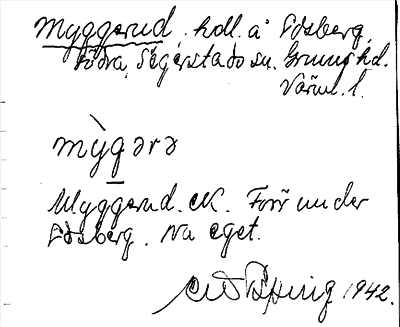 Myggerud. hdl. å Edsberg,
Södra, Segerstads sn. Grums hd.
Värml. l.
mỳgərə
Myggerud. ek. Förr under
Edsberg. Nu eget.
1942.